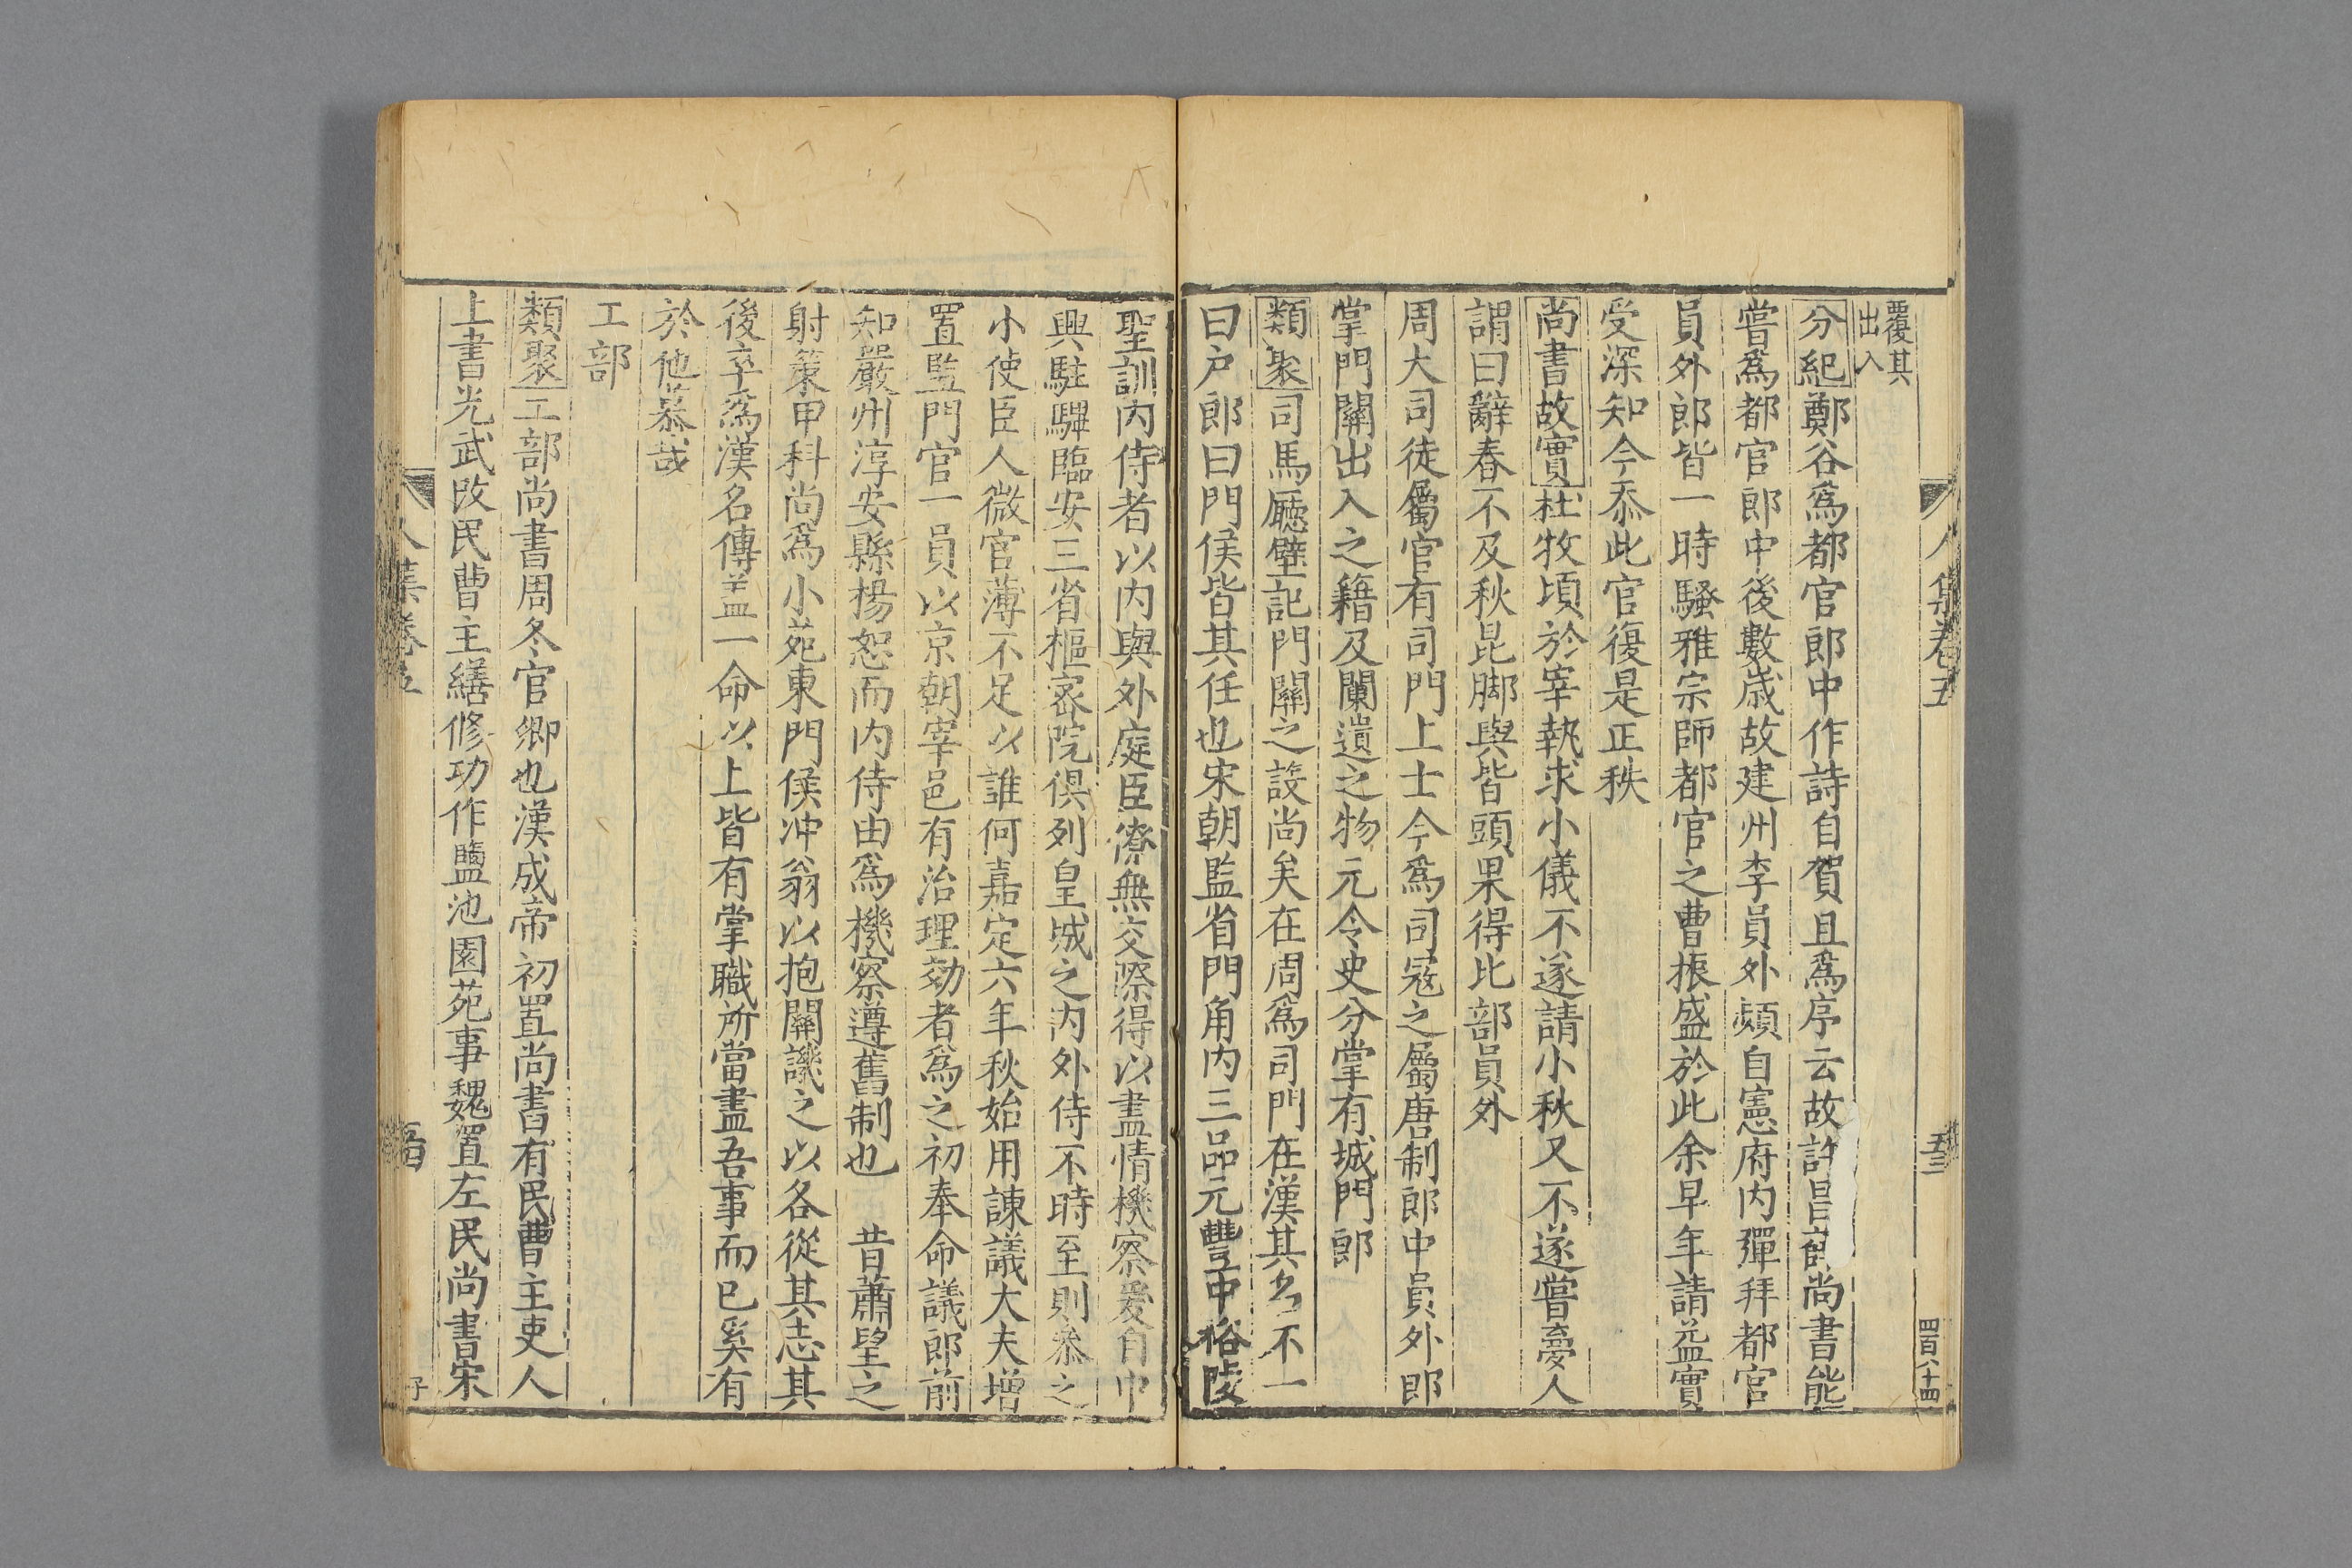 覆其
出入
分紀鄭谷爲都官郎中作詩自賀且爲序云故許昌尚書能
嘗爲都官郎中後數歲故建州李員外頻自憲府内彈拜都官
員外郎皆一時騷雅宗師都官之曹振盛於此余早年請益實
受深知今忝此官復是正秩
尚書故實杜牧頃於宰執求小儀不遂請小秋又不遂嘗夢人
謂曰辭春不及秋昆脚與皆頭果得比部員外
周大司徒屬官有司門上士今爲司冦之屬唐制郎中員外郎
掌門關出入之籍及闌遺之物元令史分掌有城門郎
類聚司馬廳壁記門關之設尚矣在周爲司門在漢其名不一
曰户郎曰門侯皆其任也宋朝監省門角内三品元豐中裕陵
人集卷五
四百八十四
聖訓内侍者以内與外庭臣僚無交際得以盡情機察爰自中
興駐驆臨安三省樞宻院俱列皇城之内外侍不時至則叅之
小使臣人微官薄不足以誰何嘉定六年秋始用諫議大夫增
置監門官一員以京朝宰邑有治理効者爲之初奉命議郎前
知嚴州淳安縣楊恕而内侍由爲機察遵舊制也 昔蕭望之
射策甲科尚爲小苑東門侯冲翁以抱關譏之以各從其志其
後卒爲漢名傳盖一命以上皆有掌職所當盡吾事而已奚有
於他慕哉
工部
類聚工部尚書周冬官卿也漢成帝初置尚書有民曹主吏人
上書光武改民曹主繕修功作鹽池園苑事魏置左民尚書宋
人集卷五
子